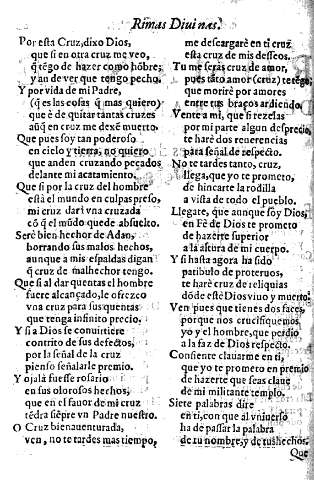 Rimas Diuinas.
Por esta Cruz, dixo Dios,
que si en otra cruz me veo,
q̃ tẽgo de hazer como hõbre;
y an de ver que tengo pecho.
Y por vida de mi Padre,
(q̃ es las cosas q̃ mas quiero)
que è de quitar tantas cruzes
aũq̃ en cruz me dexẽ muerto.
Que pues soy tan poderoso
en cielo y tierra, no quiero
que anden cruzando pecados
delante mi acatamiento.
Que si por la cruz del hombre
està el mundo en culpas preso,
mi cruz darà vna cruzada
cõ q̃ el mũdo quede absuelto.
Serè bien hechor de Adan,
borrando sus malos hechos,
aunque a mis espaldas digan
q̃ cruz de malhechor tengo.
Que si al dar quentas el hombre
fuere alcançado, le ofrezco
vna cruz para sus quentas
que tenga infinito precio.
Y si a Dios se conuirtiere
contrito de sus defectos,
por la señal de la cruz
pienso señalarle premio.
Y ojalà fuesse rosario
en sus olorosos hechos,
que en el fauor de mi cruz
tẽdrà siẽpre vn Padre nuestro.
O Cruz bienauenturada,
ven, no te tardes mas tiempo,
me descargarè en ti cruz
esta cruz de mis desseos.
Tu me seràs cruz de amor,
pues tãto amor (cruz) te tẽgo,
que morirè por amores
entre tus braços ardiendo.
Vente a mi, que si rezelas
por mi parte algun desprecio,
te harè dos renerencias
para señal de respecto.
No te tardes tanto, cruz,
llega, que yo te prometo,
de hincarte la rodilla
a vista de todo el pueblo.
Llegate, que aunque soy Dios,
en Fè de Dios te prometo
de hazerte superior
a la altura de mi cuerpo.
Y si hasta agora ha sido
patibulo de proteruos,
te harè cruz de reliquias
dõde estè Dios viuo y muerto.
Ven pues que tienes dos faces,
porque nos crucifiquemos
yo y el hombre, que perdio
a la faz de Dios respecto.
Consiente clauarme en ti,
que yo te prometo en premio
de hazerte que seas claue
de mi militante templo.
Siete palabras dire
en ti, con que al vniuerso
ha de passar la palabra
de tu nombre, y de tus hechos.
Que